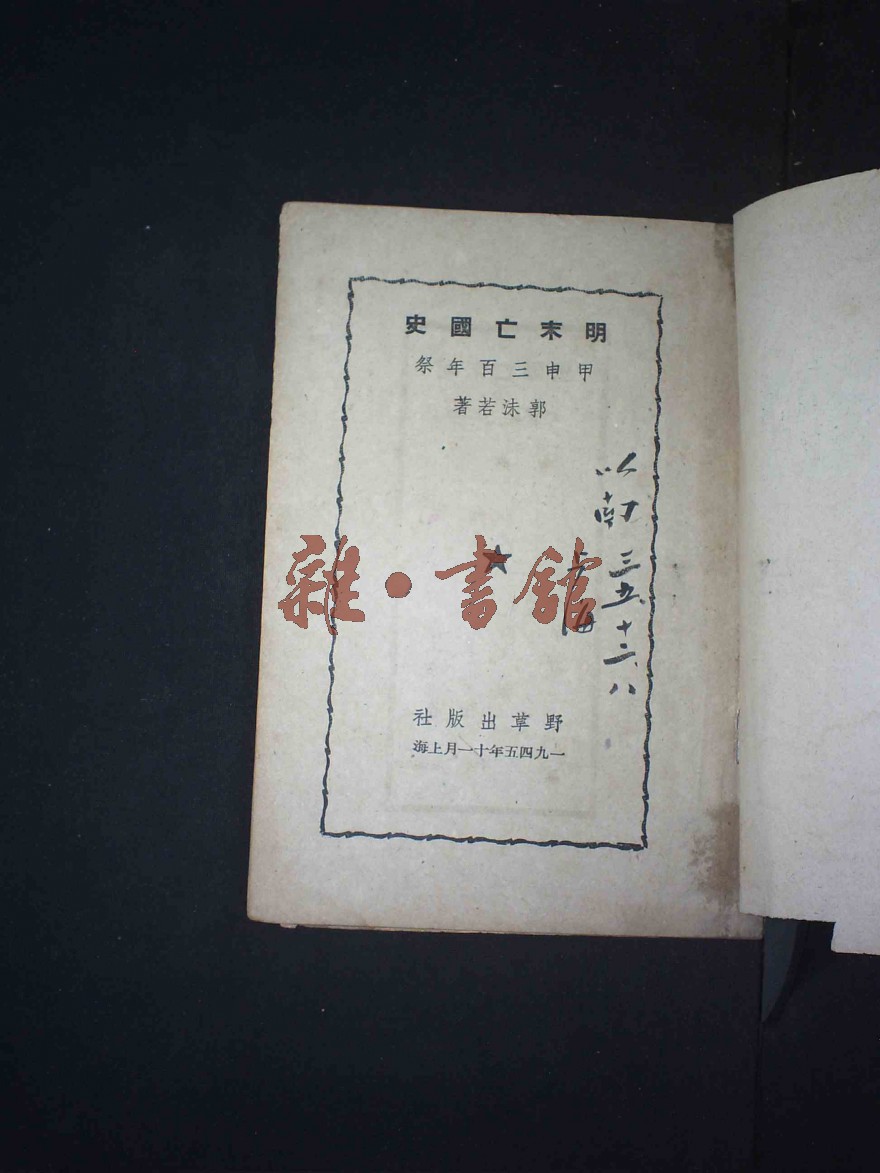 明末亡國史
甲申三百年祭
郭沫若著
以南 三五、十二、八
上海
雜·書館
野草出版社
一九四五年十一月上海